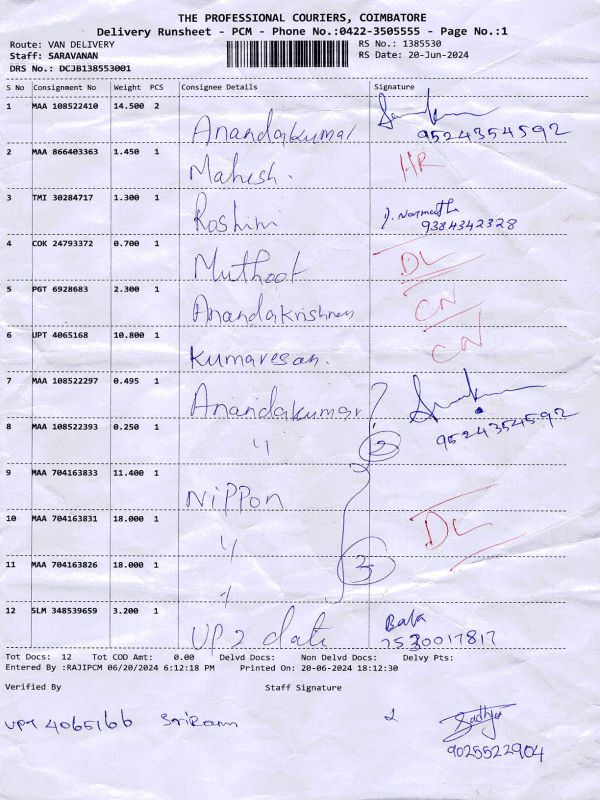 THE PROFESSIONAL COURIERS, COIMBATORE
Delivery Runsheet - PCM - Phone No.:0422-3505555 - Page No.:1
Route: VAN DELIVERY RS No.: 1385530
Staff: SARAVANAN RS Date: 20-Jun-2024
DRS No.: DCJB138553001
S No Consignment No Weight PCS Consignee Details Signature
1 MAA 108522410 14.500 2 Anandakumar
9524354592
2 MAA 866403363 1.450 1 Mahesh. HR
3 TMI 30284717 1.300 1 Roshini
9384342328
4 COK 24793372 0.700 1 Muthoot DL
5 PGT 6928683 2.300 1 Anandakrishnan CN
6 UPT 4065168 10.800 1 Kumaresan. CN
7 MAA 108522297 0.495 1 Anandakumar
9524354592
8 MAA 108522393 0.250 1 〃 2
9 MAA 704163833 11.400 1 NiPPON
10 MAA 704163831 18.000 1 〃 DL
11 MAA 704163826 18.000 1 〃 3
12 SLM 348539659 3.200 1 UP2 date Bala
7530017817
Tot Docs: 12 Tot COD Amt: 0.00 Delvd Docs: Non Delvd Docs: Delvy Pts:
Entered By :RAJIPCM 06/20/2024 6:12:18 PM Printed On: 20-06-2024 18:12:30
Verified By Staff Signature
UPT 4065166 SriRam
9025522904